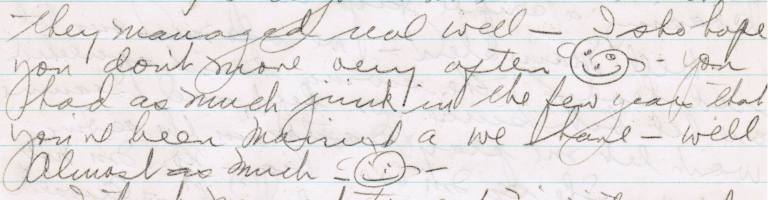 they managed real well – I sho hope
you don't move very often – you
had as much junk in the few years that
you've been married a we have – well
Almost as much –